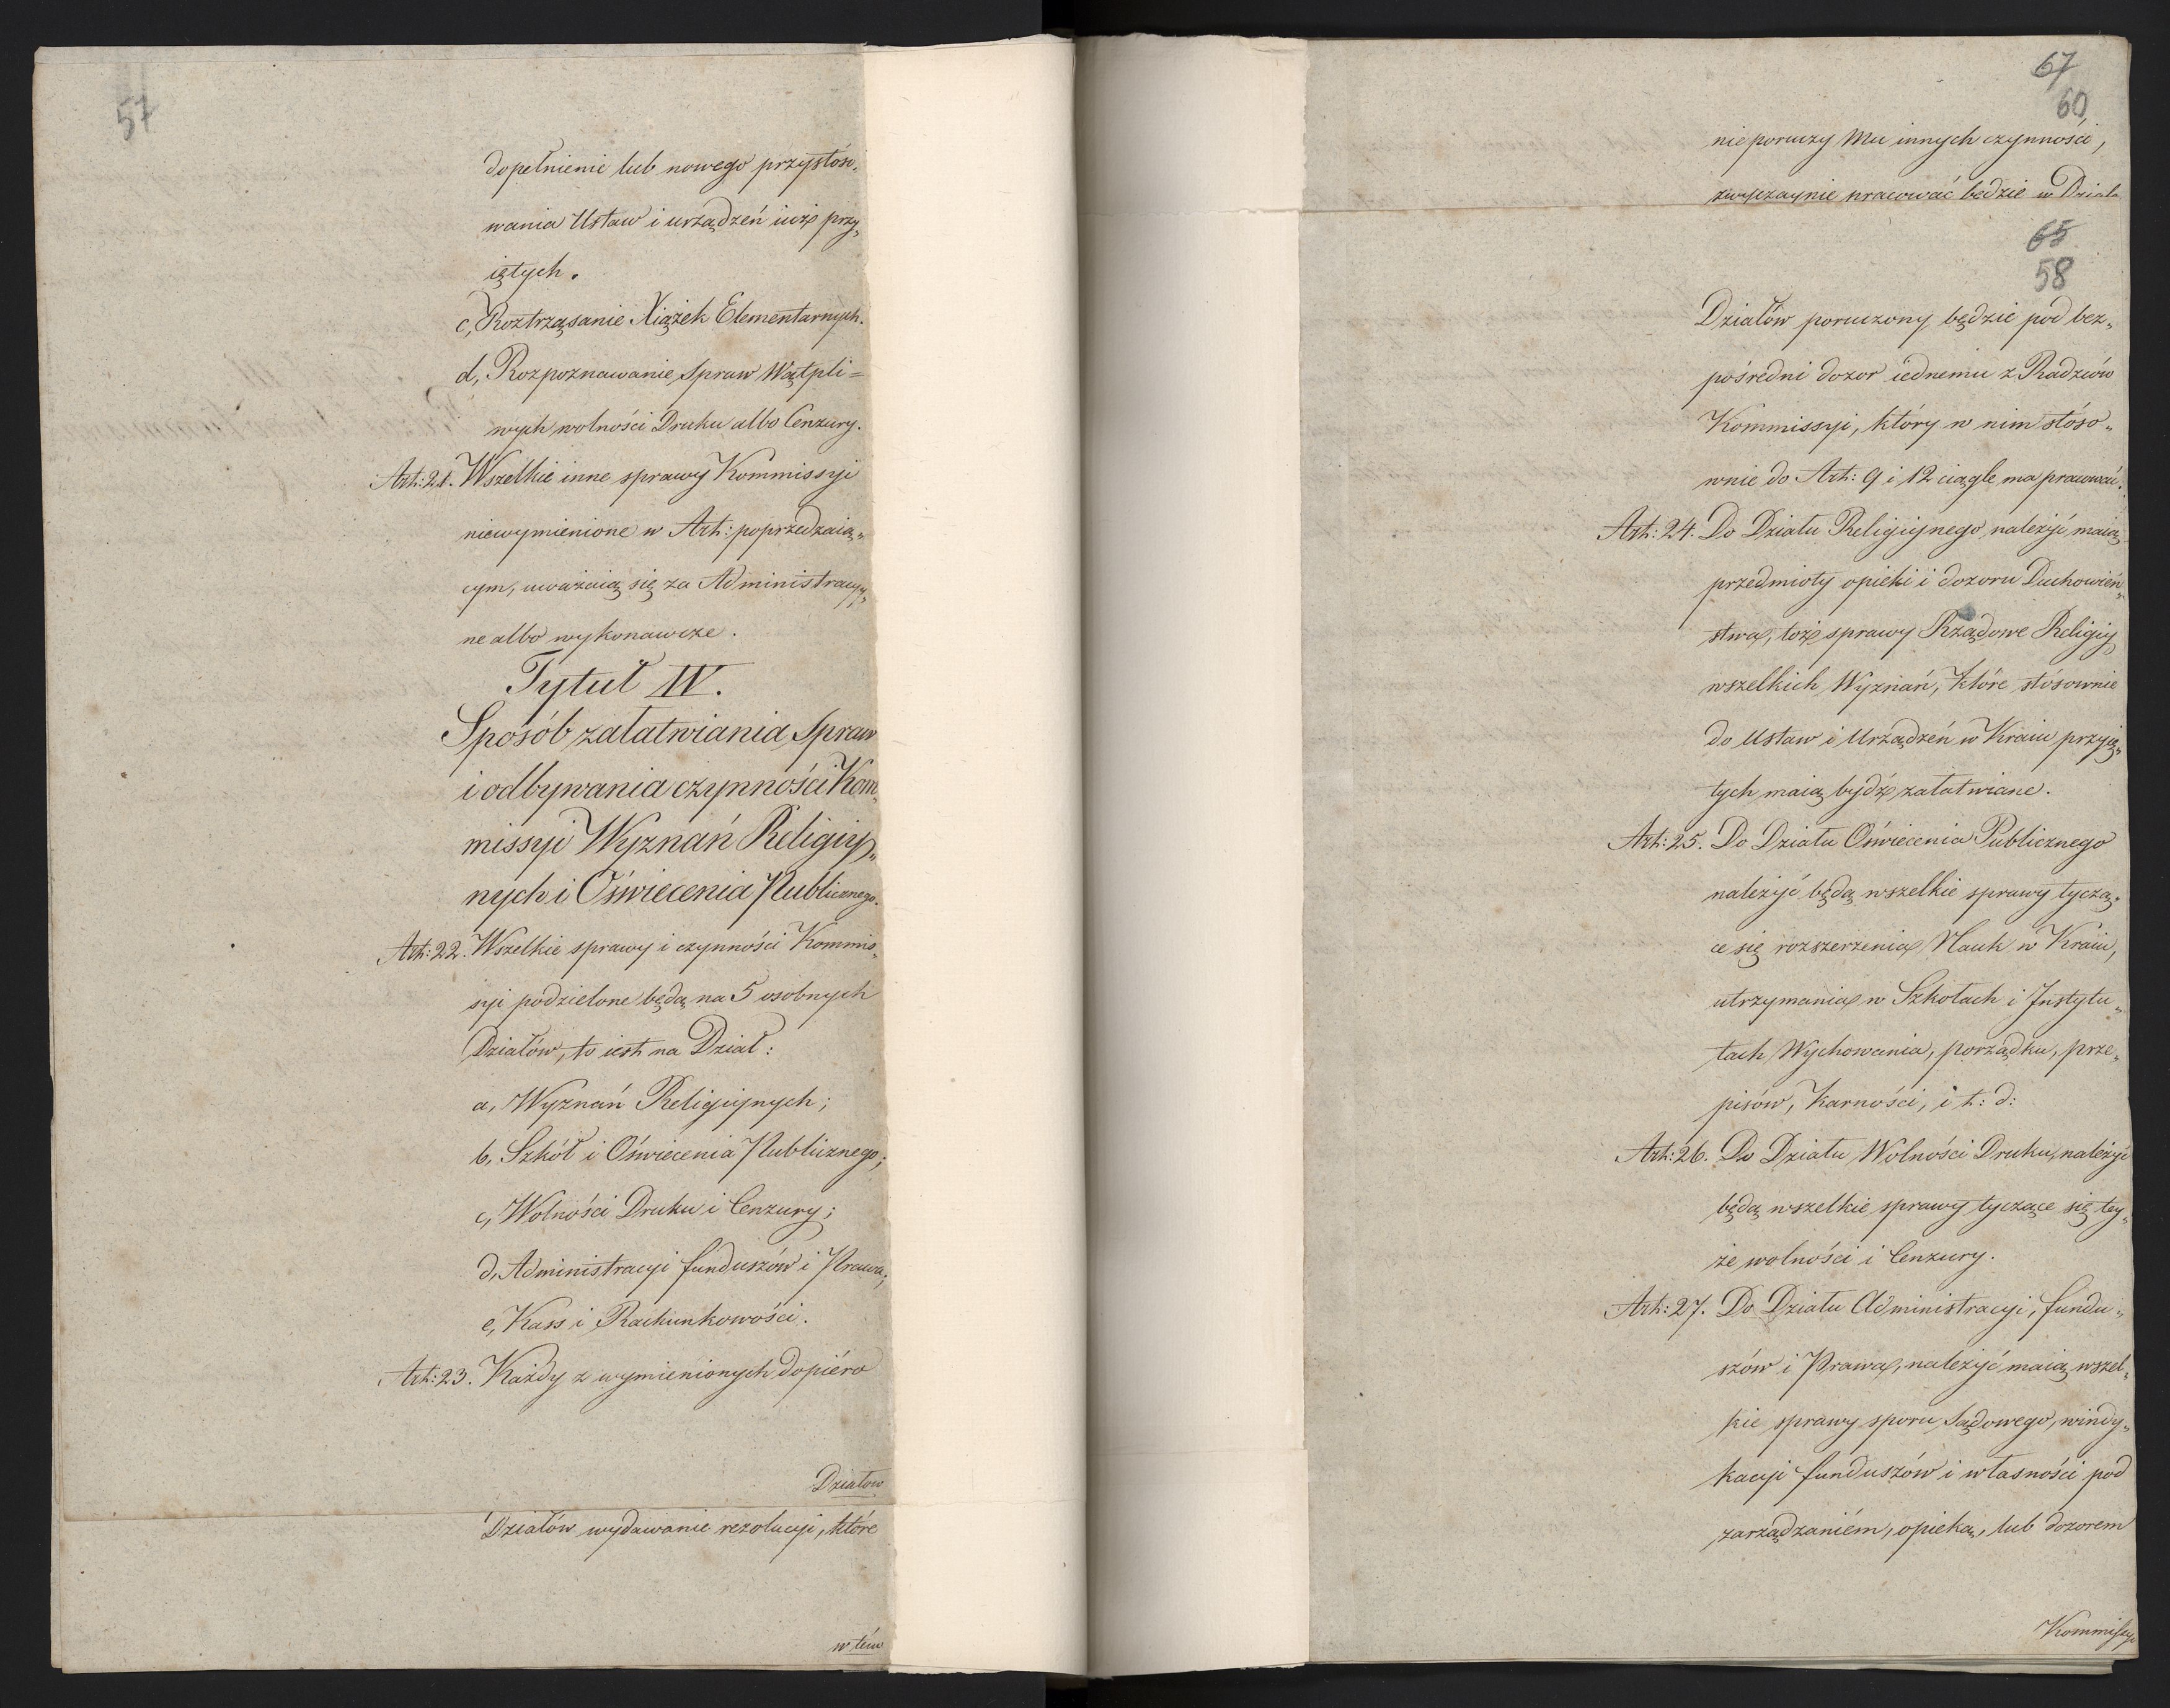 57
dopełnienie lub nowego przystóso„
wania Ustaw i urządzeń iuż przy„
iętych.
c, Roztrząsanie Xiążek Elementarnych.
d, Rozpoznawanie Spraw Wątpli=
wych wolności Druku albo Cenzury.
Art: 21. Wszelkie inne sprawy Kommissyi
niewymienione w Art: poprzedzaią„
cym, uważaią się za Administracyy„
ne albo wykonawcze.
Tytuł IV.
Sposób załatwiania Spraw
i odbywania czynności Kom„
missyi Wyznań Religiy„
nych i Oświecenia Publicznego.
Art: 22. Wszelkie sprawy i czynności Kommis„
syi podzielone będą na 5 osobnych
Działów, to iest na Dział:
a, Wyznań Religiynych;
b, Szkół i Oświecenia Publicznego;
c, Wolności Druku i Cenzury;
d, Administracyi funduszów i Prawa;
e, Kass i Rachunkowości.
Art: 23. Każdy z wymienionych dopiéro
Działow
Działów wydawanie rezolucyi, które
w tém
67
60
nie poruczy Mu innych czynności,
zwyczaynie pracować będzie w Dziale
65
58
Działów poruczony będzie pod bez„
pośredni dozor iednemu z Radzców
Kommissyi, który w nim stóso„
wnie do Art: 9 i 12 ciągle ma pracować.
Art: 24. Do Działu Religiynego należyć maią
przedmioty opieki i dozoru Duchowień„
stwa, toż sprawy Rządowe Religiy
wszelkich Wyznań, które stósownie
do Ustaw i Urządzeń w Kraiu przyię„
tych maią bydź załatwiane.
Art: 25. Do Działu Oświecenia Publicznego
należyć będą wszelkie sprawy tyczą„
ce się rozszerzenia Nauk w Kraiu,
utrzymania w Szkołach i Instytu„
tach Wychowania, porządku, prze„
pisów, Karności, i t: d:
Art: 26. Do Działu Wolności Druku, należyć
będą wszelkie sprawy tyczące się tey„
że wolności i Cenzury.
Art: 27. Do Działu Administracyi, fundu„
szów i Prawa, należyć maią wszel„
kie sprawy sporu Sądowego, windy„
kacyi funduszów i własności pod
zarządzaniém, opieką, lub dozorem
Kommissyi